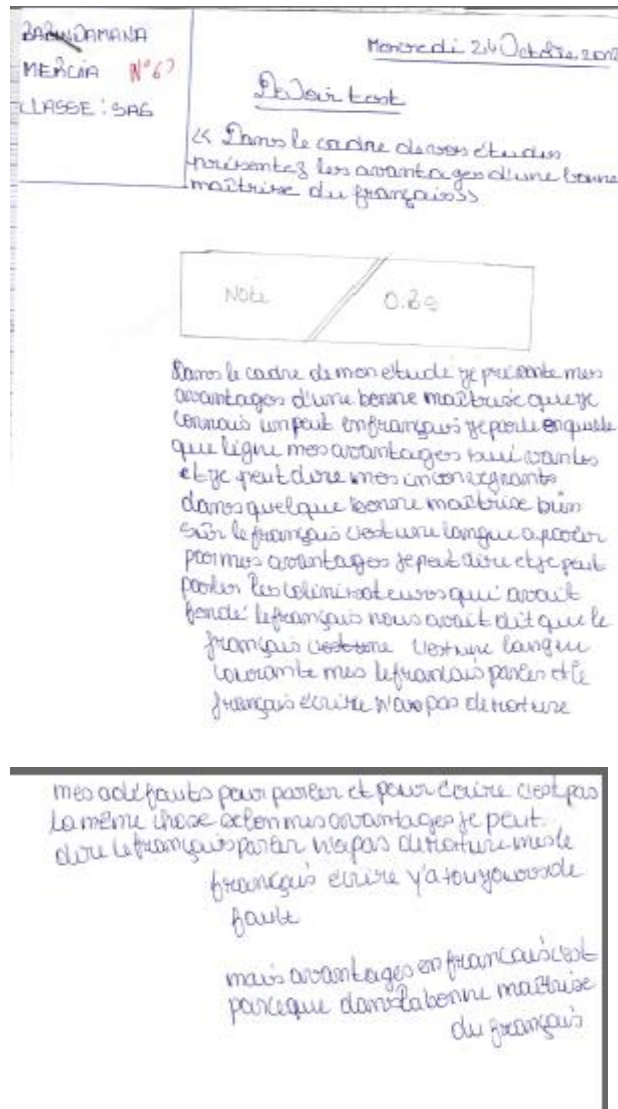 MERCIA N°67
CLASSE : SAG
Mercredi 24 Octobre 2012
Devoir test
<< Dans le cadre de vos études
présentez les avantages d'une bonne
maîtrise du français>>
Note
Dans le cadre de mon etude je présente mes
avantages d'une bonne maîtrise que je
connais un peut en français je parle en quelle
que ligne mes avantages suivantes
et je peut dire mes
dans quelque bonne maîtrise bien
sûr le français c'est une langue a parler
par mes avantages je peut dire et je peut
parler les colinisateurs qui avait
fondé le français nous avait dit que le
français c'est une c'est une langue
courante mes le francais parler et le
français écrire n'a pas de rature
mes a défauts pour parler et pour écrire c'est pas
la même chose selon mes avantages je peut
dire le français parler n'a pas de rature mes le
français écrire y'a toujours de
faute
mais avantages en francais c'est
parceque dans la bonne maîtrise
du français